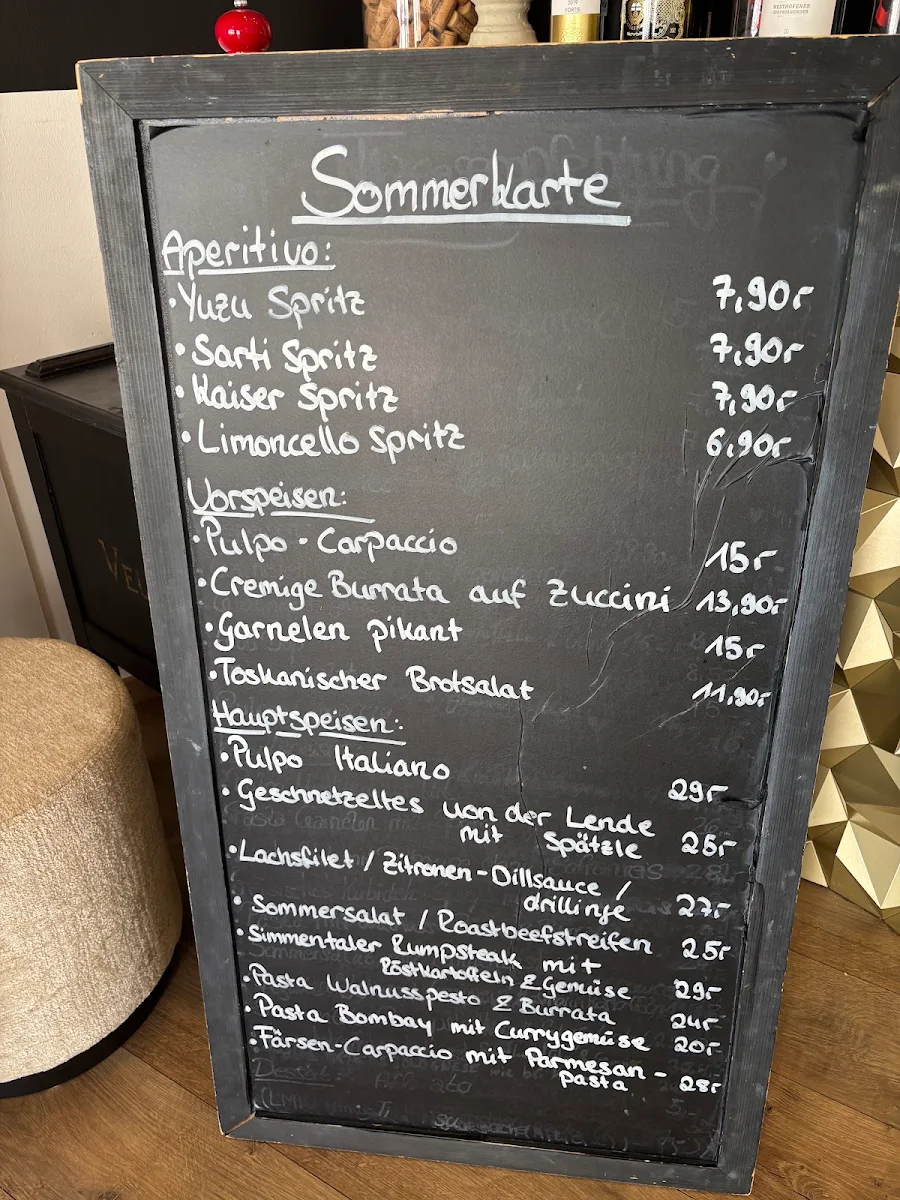 Sommerkarte
Aperitivo:
• Yuzu Spritz 7,90€
• Sarti Spritz 7,90€
• Kaiser Spritz 7,90€
• Limoncello Spritz 6,90€
Vorspeisen:
• Pulpo - Carpaccio 15€
• Cremige Burrata auf Zuccini 13,90€
• Garnelen pikant 15€
• Toskanischer Brotsalat 11,90€
Hauptspeisen:
• Pulpo Italiano 29€
• Geschnetzeltes von der Lende
mit Spätzle 25€
• Lachsfilet / Zitronen-Dillsauce /
drillinge 27€
• Sommersalat / Roastbeefstreifen 25€
• Simmentaler Rumpsteak mit
Röstkartoffeln & Gemüse 29€
• Pasta Walnusspesto & Burrata 24€
• Pasta Bombay mit Currygemüse 20€
• Färsen-Carpaccio mit Parmesan-
pasta 28€